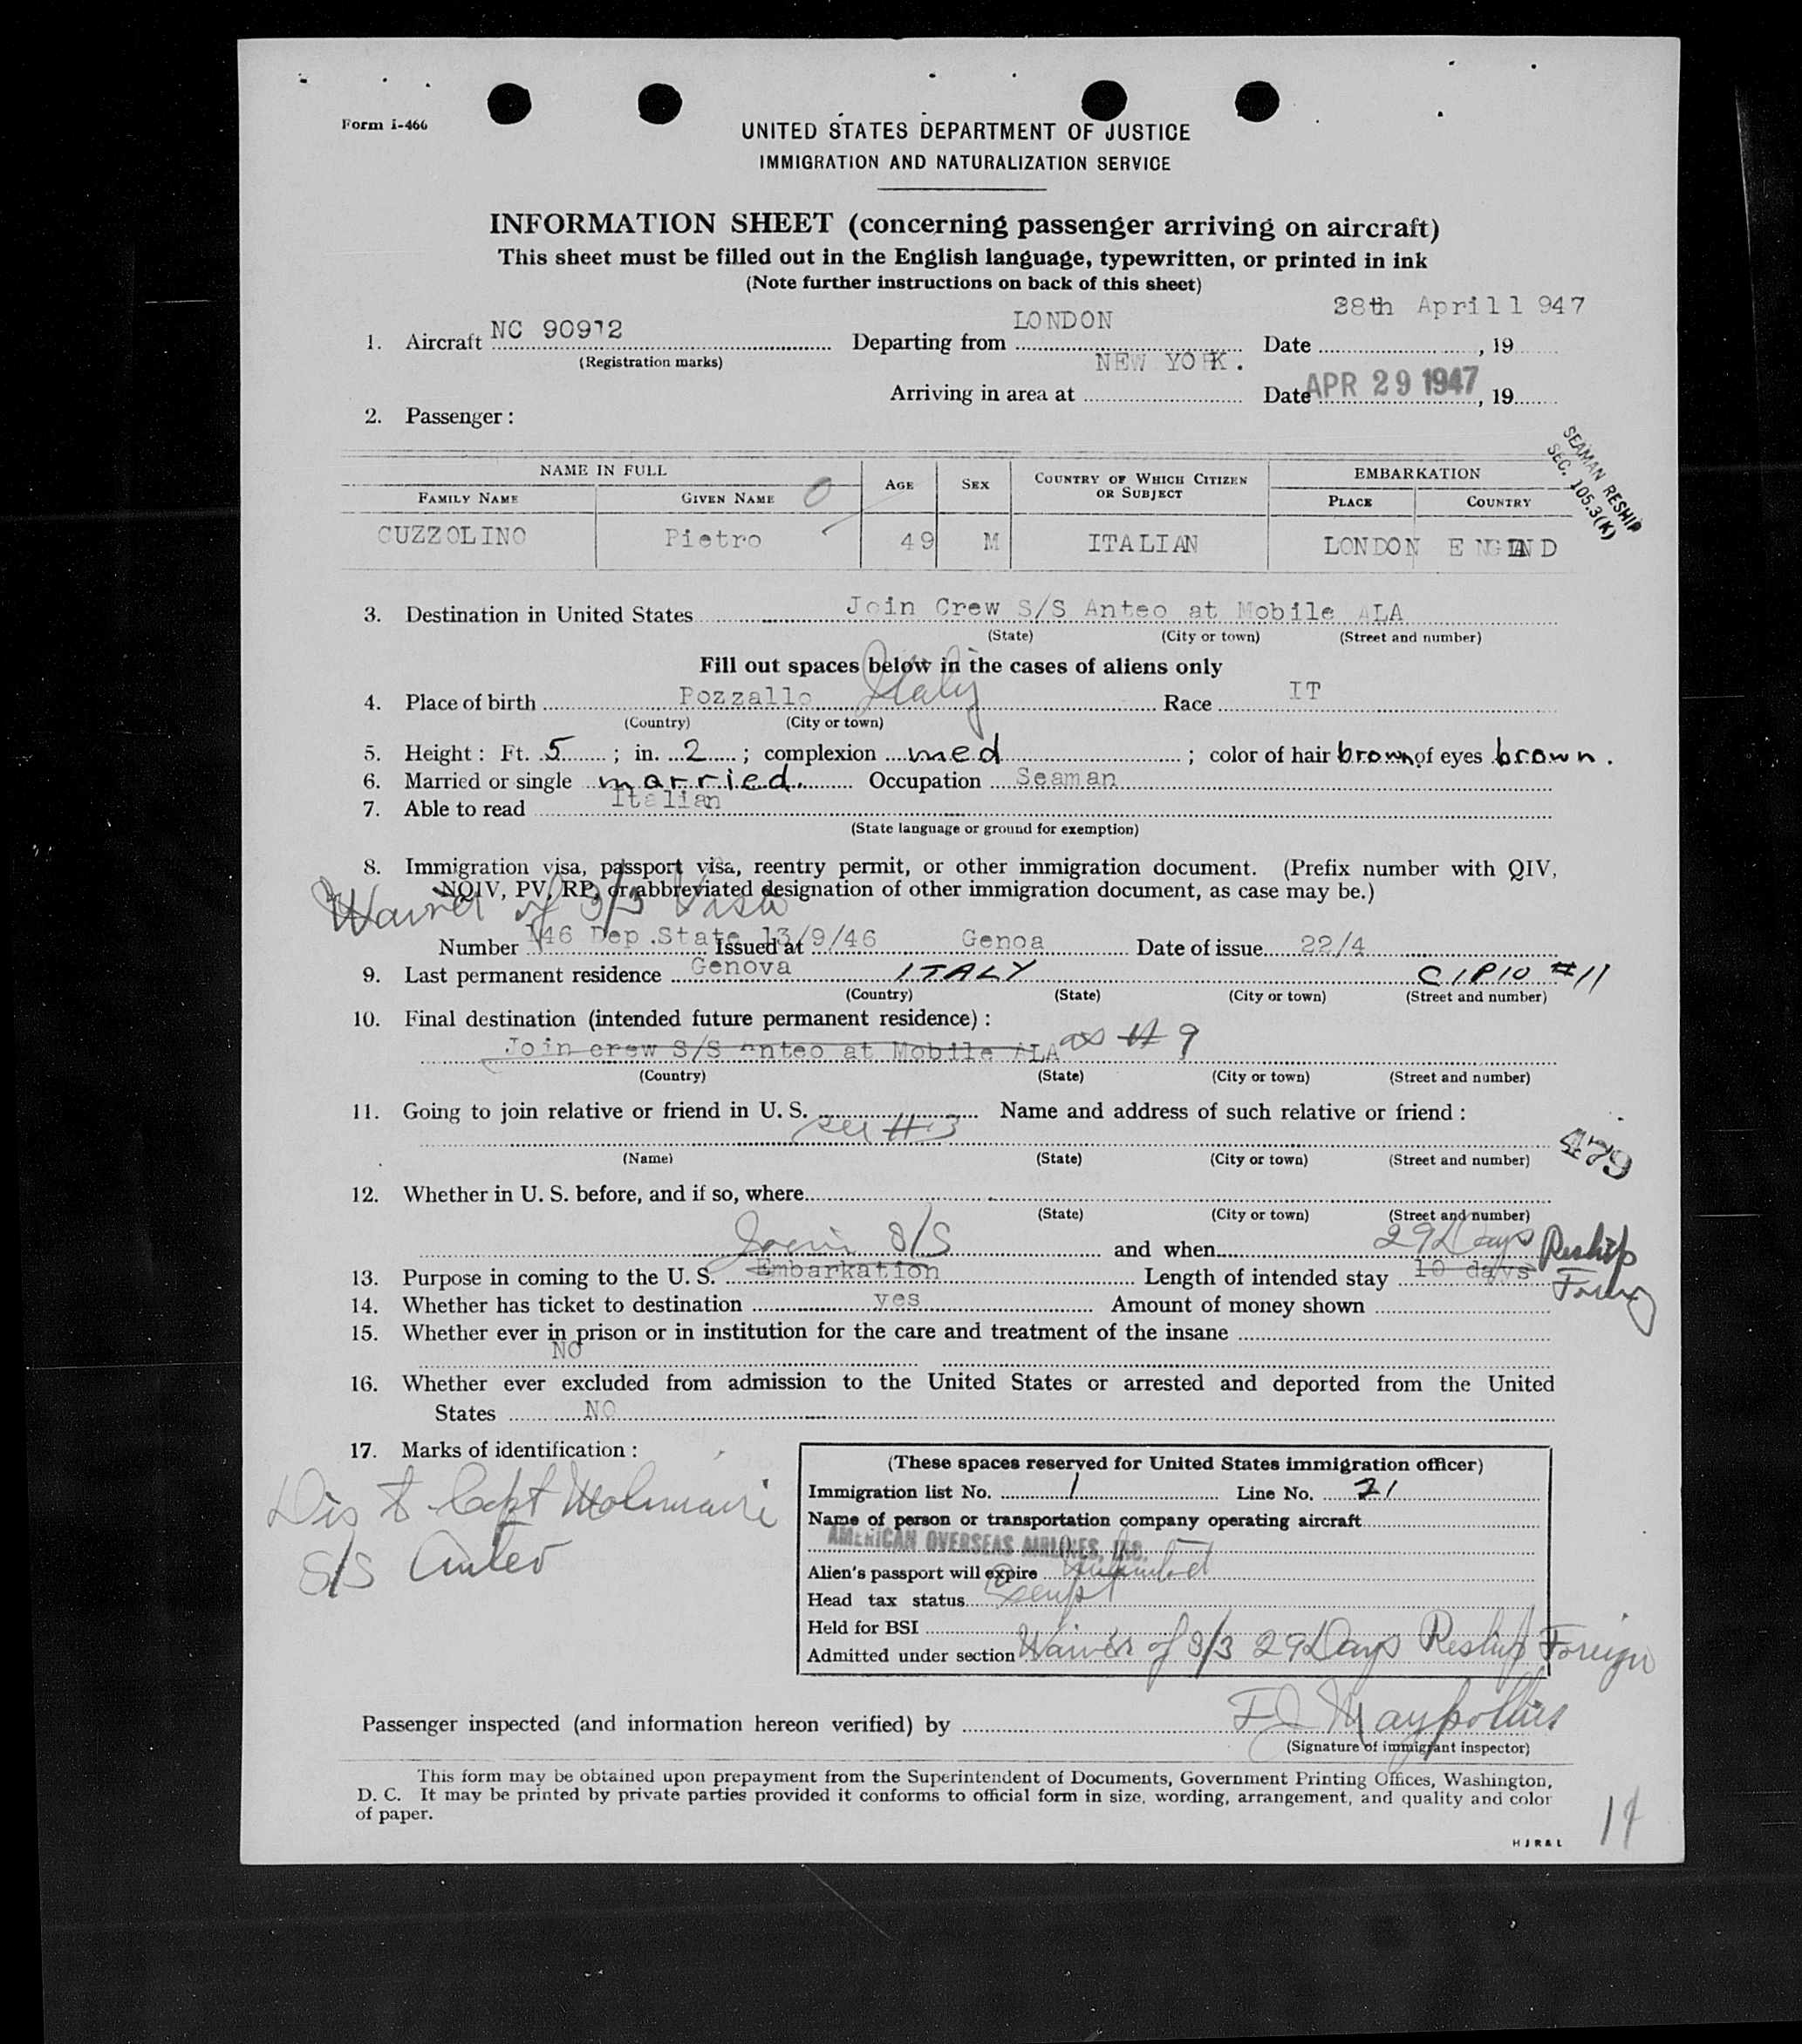 Form I-466
UNITED STATES DEPARTMENT OF JUSTICE
IMMIGRATION AND NATURALIZATION SERVICE
INFORMATION SHEET (concerning passenger arriving on aircraft)
This sheet must be filled out in the English language, typewritten, or printed in ink
(Note further instructions on back of this sheet)
1. Aircraft NC 90912 Departing from LONDON Date 28th April 1 947, 19
(Registration marks)
Arriving in area at NEW YORK. Date APR 29 1947, 19
2. Passenger :
SEAMAN RESHIP
SEC. 105.3(K)
NAME IN FULL AGE SEX COUNTRY OF WHICH CITIZEN OR SUBJECT EMBARKATION
FAMILY NAME GIVEN NAME PLACE COUNTRY
CUZZOLINO Pietro 49 M ITALIAN LONDON ENGLAND
3. Destination in United States Join Crew S/S Anteo at Mobile ALA
(State) (City or town) (Street and number)
Fill out spaces below in the cases of aliens only
4. Place of birth Pozzallo Italy Race IT
(Country) (City or town)
5. Height : Ft. 5 ; in. 2 ; complexion med ; color of hair brown of eyes brown.
6. Married or single married. Occupation Seaman
7. Able to read Italian
(State language or ground for exemption)
8. Immigration visa, passport visa, reentry permit, or other immigration document. (Prefix number with QIV,
NQIV, PV, RP, or abbreviated designation of other immigration document, as case may be.)
Waiver of 3/3 Visa
Number 146 Dep.State 13/9/46 Issued at Genoa Date of issue 22/4
9. Last permanent residence Genova ITALY CIPIO #11
(Country) (State) (City or town) (Street and number)
10. Final destination (intended future permanent residence) :
Join crew S/S Anteo at Mobile ALA as # 9
(Country) (State) (City or town) (Street and number)
11. Going to join relative or friend in U. S. Name and address of such relative or friend :
see #3
(Name) (State) (City or town) (Street and number)
479
12. Whether in U. S. before, and if so, where
(State) (City or town) (Street and number)
Join S/S and when 29 Days Reship
13. Purpose in coming to the U. S. Embarkation Length of intended stay 10 days
14. Whether has ticket to destination yes Amount of money shown
15. Whether ever in prison or in institution for the care and treatment of the insane
NO
16. Whether ever excluded from admission to the United States or arrested and deported from the United
States NO
17. Marks of identification :
Dis to Capt
S/S Anteo
(These spaces reserved for United States immigration officer)
Immigration list No. 1 Line No. 21
Name of person or transportation company operating aircraft
AMERICAN OVERSEAS AIRLINES, INC.
Alien's passport will expire unlimited
Head tax status Exempt
Held for BSI
Admitted under section Waiver of 3/3 29 Days Reship Foreign
Passenger inspected (and information hereon verified) by
(Signature of immigrant inspector)
This form may be obtained upon prepayment from the Superintendent of Documents, Government Printing Offices, Washington,
D. C. It may be printed by private parties provided it conforms to official form in size, wording, arrangement, and quality and color
of paper.
H J R & L
14